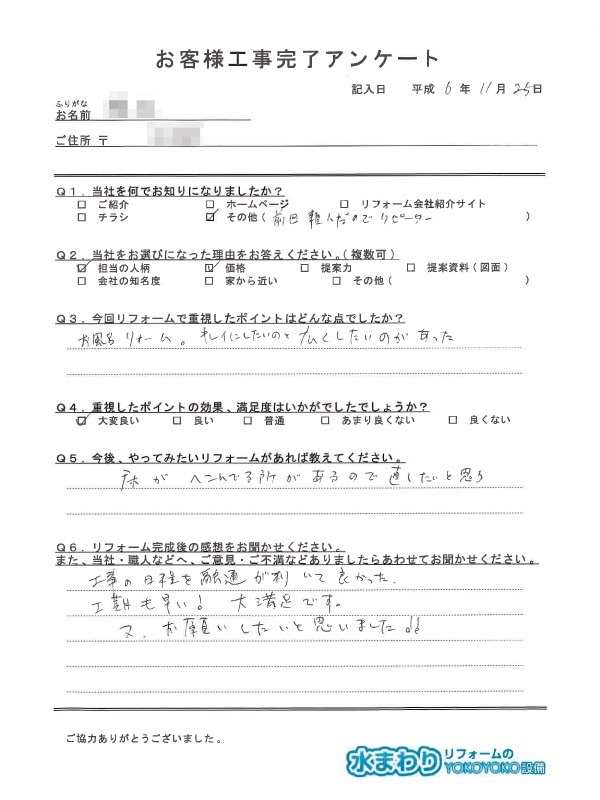 お客様工事完了アンケート
記入日 平成 6 年 11 月 25 日
ふりがな
お名前
ご住所 〒
Q1．当社を何でお知りになりましたか？
□ ご紹介 □ ホームページ □ リフォーム会社紹介サイト
□ チラシ ☑ その他（前回頼んだのでリピーター）
Q2．当社をお選びになった理由をお答えください。（複数可）
☑ 担当の人柄 ☑ 価格 □ 提案力 □ 提案資料（図面）
□ 会社の知名度 □ 家から近い □ その他（ ）
Q3．今回リフォームで重視したポイントはどんな点でしたか？
お風呂リォーム。キレイにしたいのと広くしたいのがあった
Q4．重視したポイントの効果、満足度はいかがでしたでしょうか？
☑ 大変良い □ 良い □ 普通 □ あまり良くない □ 良くない
Q5．今後、やってみたいリフォームがあれば教えてください。
床がへこんでる所があるので直したいと思う
Q6．リフォーム完成後の感想をお聞かせください。
また、当社・職人などへ、ご意見・ご不満などありましたらあわせてお聞かせください。
工事の日程を融通が利いて良かった．
工期も早い！ 大満足です。
又、お願いしたいと思いました!!
ご協力ありがとうございました。
水まわりリフォームのYOKOYOKO設備